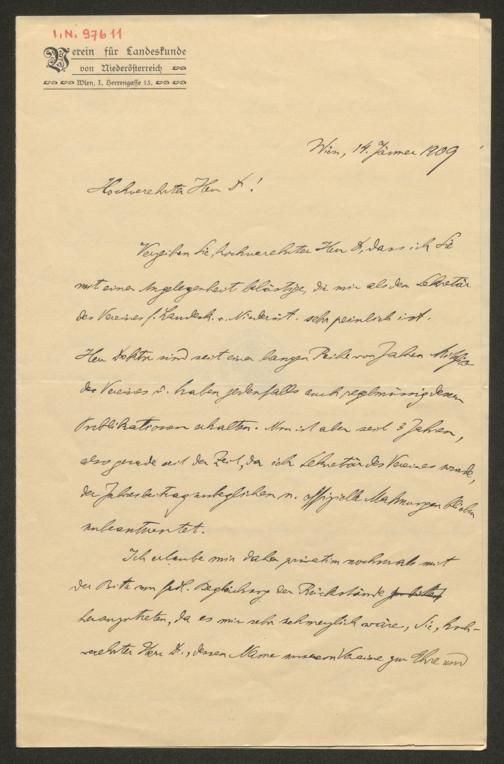 I.N. 97611
Verein für Landeskunde
von Niederösterreich
Wien, I. Herrengasse 13.
Wien, 14. Jänner 1909
Hochverehrter Herr Dr!
Verzeihen Sie, hochverehrter Herr Dr, dass ich Sie
mit einer Angelegenheit belästige, die mir als dem Sekretär
des Vereines f. Landesk. v. Niederöst. sehr peinlich ist.
Herr Doktor sind seit einer langen Reihe von Jahren Mitglied
des Vereines u. haben jedenfalls auch regelmässig dessen
Publikationen erhalten. Nun ist aber seit 3 Jahren,
also gerade seit der Zeit, da ich Sekretär des Vereines wurde,
der Jahresbeitrag ausgeblieben u. offizielle Mahnungen blieben
unbeantwortet.
Ich erlaube mir daher privatim nochmals mit
der Bitte um gefl. Begleichung der Rückstände
heranzutreten, da es mir sehr schmerzlich wäre, Sie, hoch-
verehrter Herr Dr., dessen Name unserem Vereine zur Ehre und